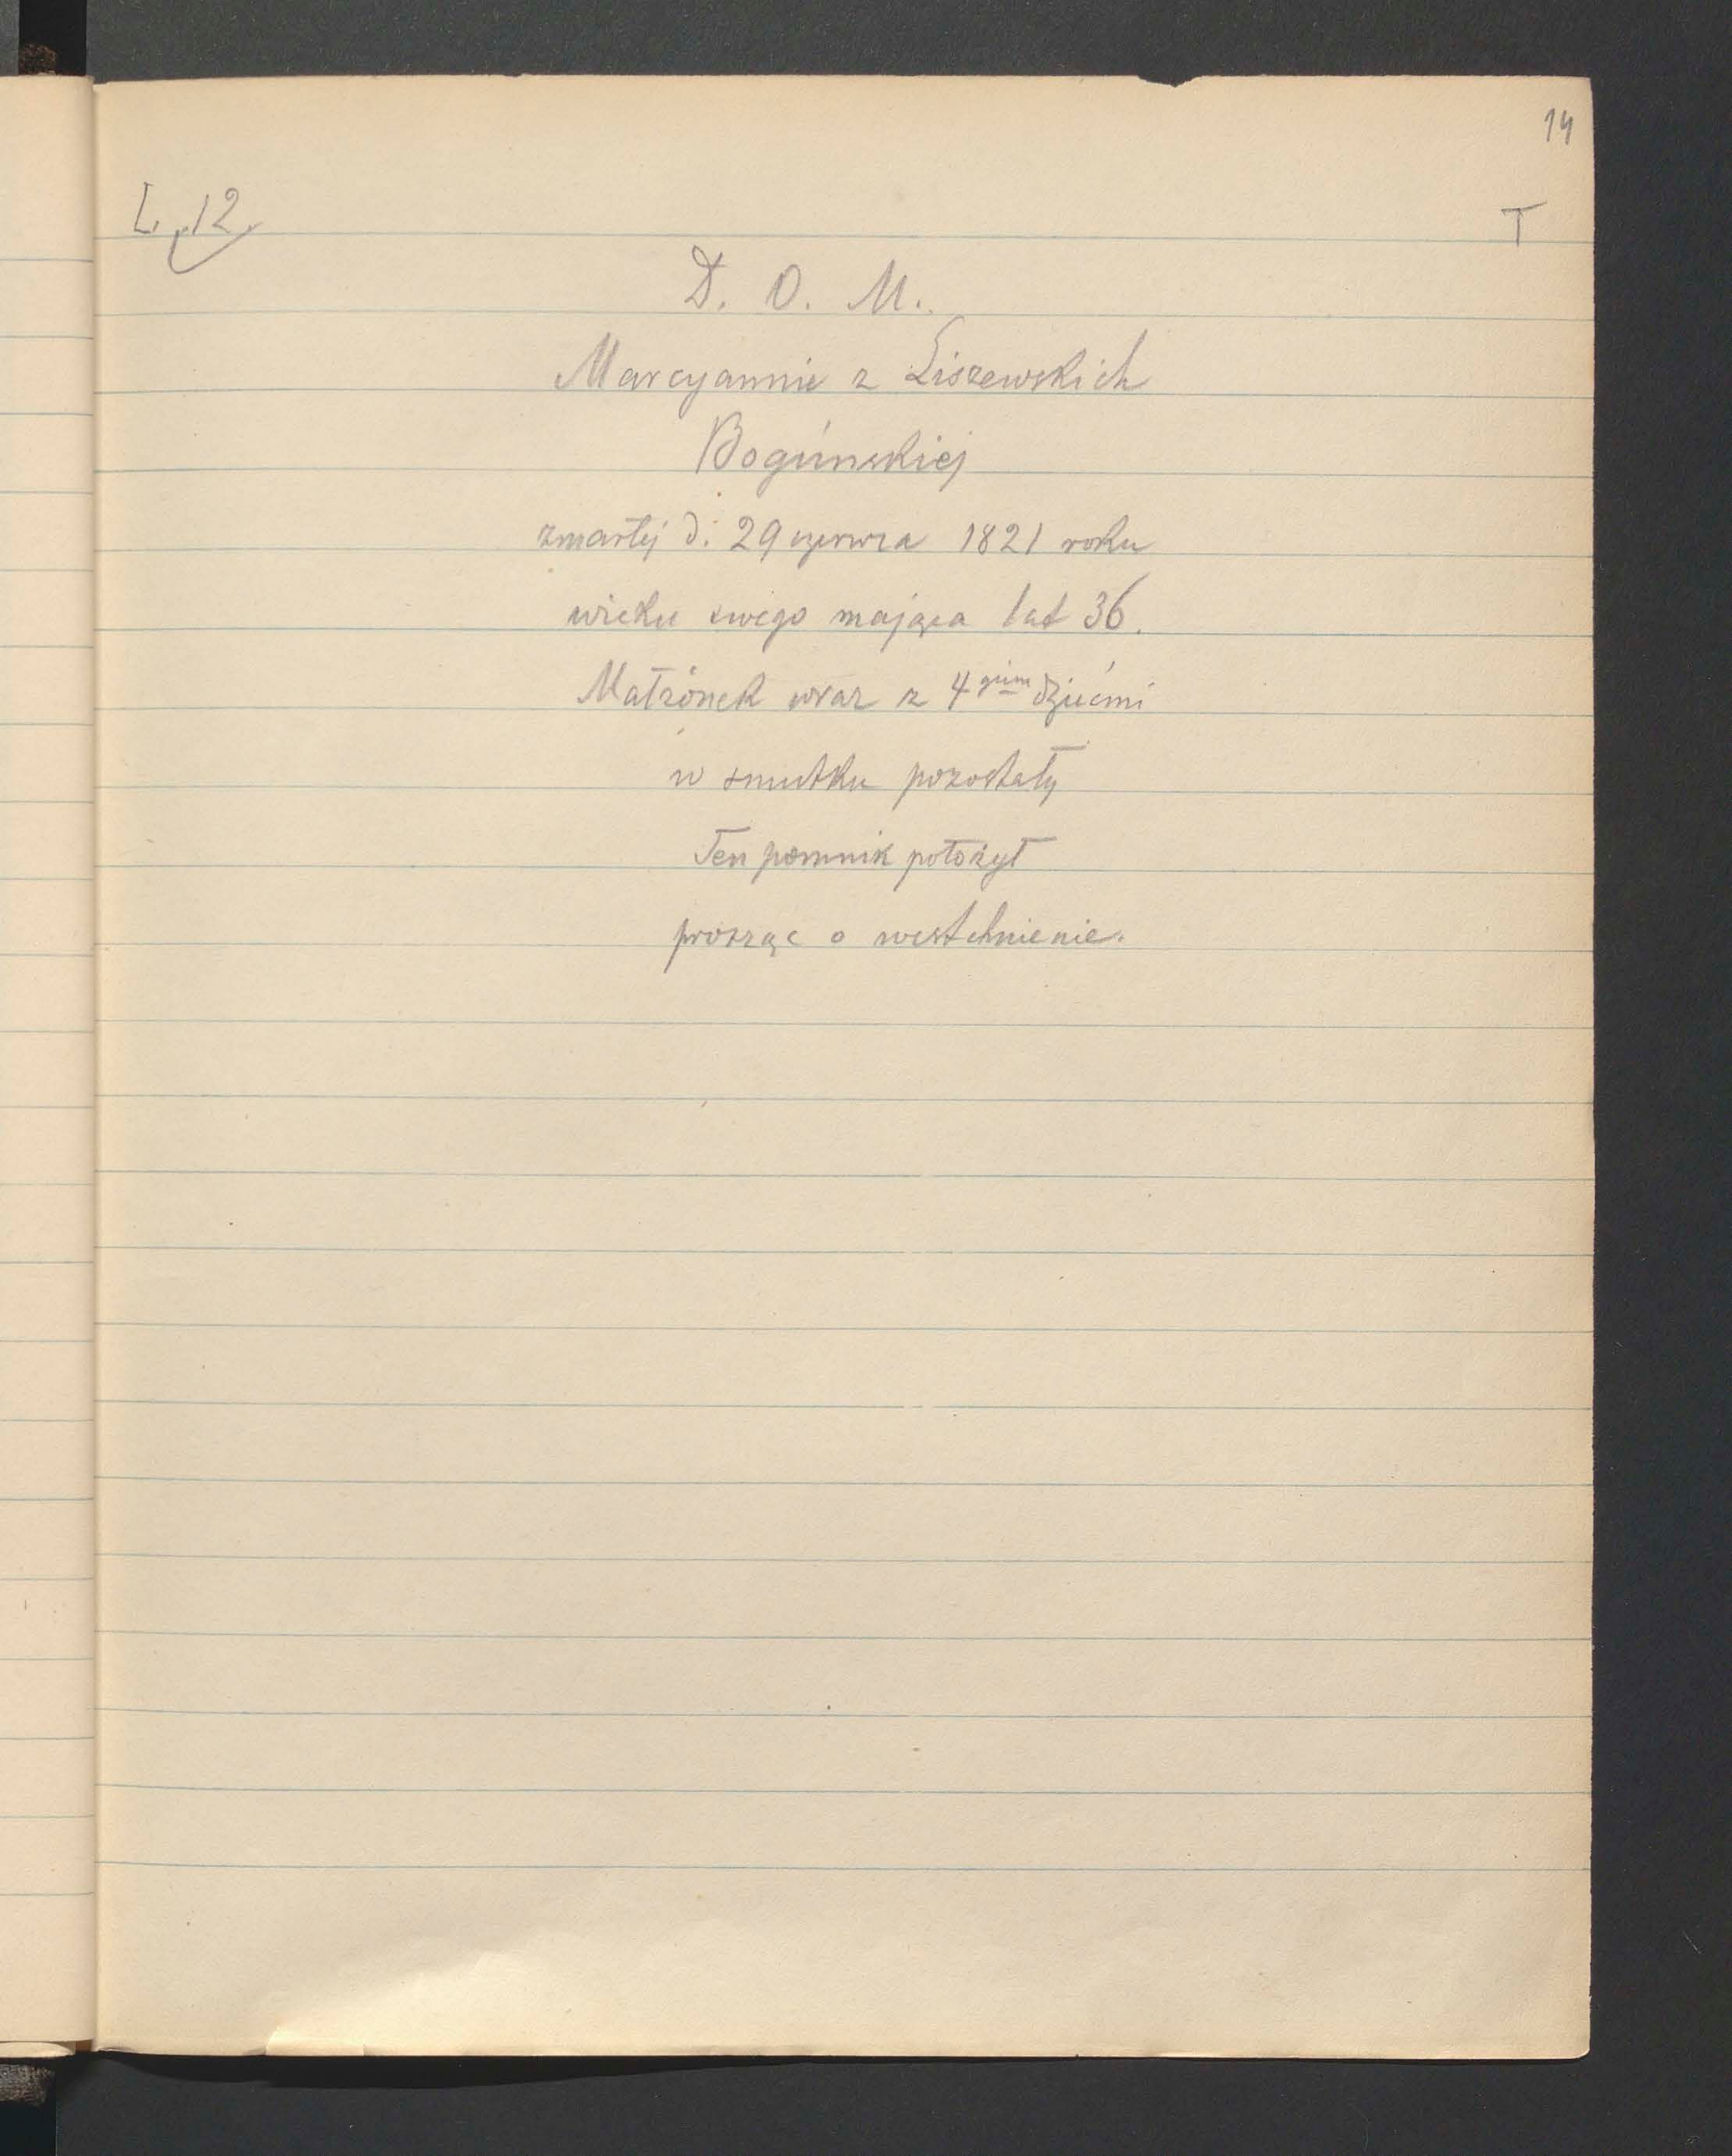 14
L. 12. T
D. O. M.
Marcyannie z Liszewskich
Bogúnskiej
zmarłej d: 29 czerwca 1821 roku
wieku swego mająca lat 36.
Małżónek wraz z 4 giem dziećmi
w smutku pozostały
Ten pomnik położył
prosząc o westchnienie.